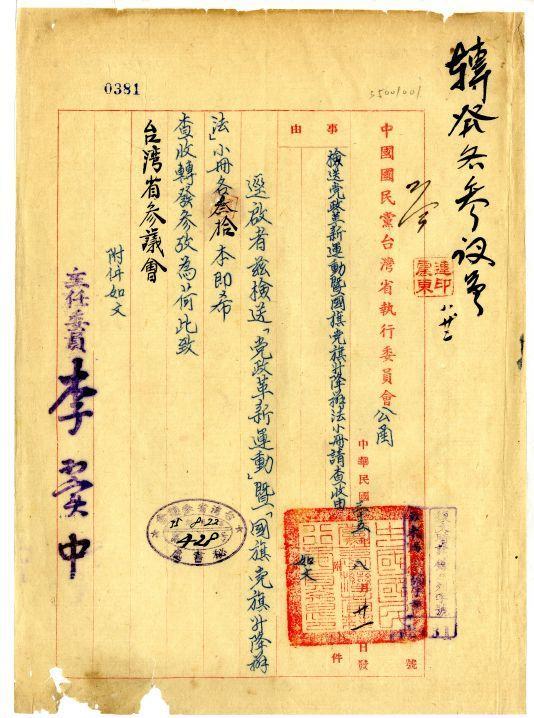 0381
轉發各參议员
八廿二
連印
震東
中國國民黨台灣省執行委員會公函
事由
檢送党政革新運動暨國旗党旗升降辦法小冊請查收由
中華民國三十五年八月廿一日發
附件
如文
號
逕啟者茲檢送「党政革新運動」暨「國旗党旗升降辦
法」小冊各叁拾本即希
查收轉發參攷為荷此致
台灣省參議會
附件如文
主任委員李翼中
台灣省參議會
35.8.22
428
秘書處